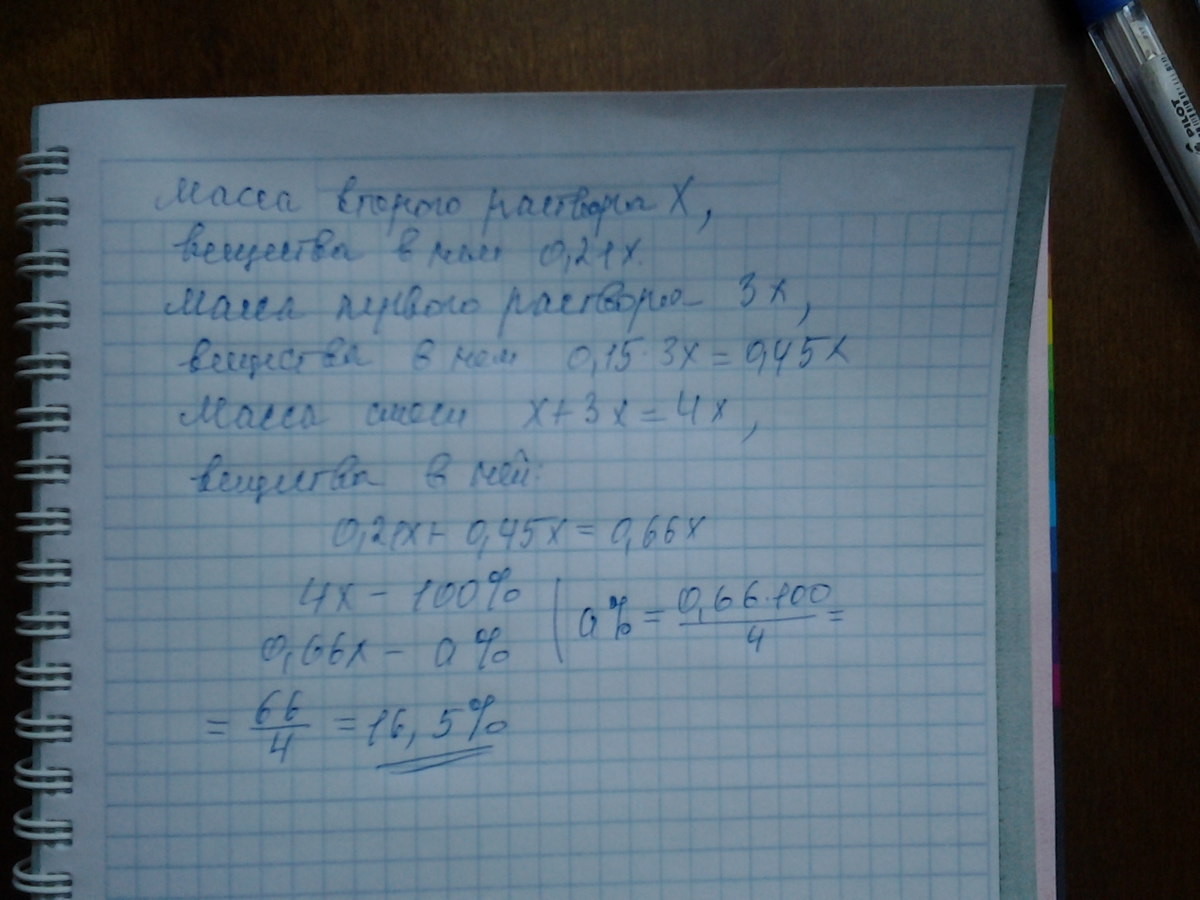 Масса второго раствора X,
вещества в нем 0,21x.
Масса первого раствора 3x,
вещества в нем 0,15·3x = 0,45x
Масса смеси x+3x=4x,
вещества в ней:
0,21x+0,45x=0,66x
4x - 100%
0,66x - a%
a% = 0,66·100/4 =
= 66/4 = 16,5%
PILOT